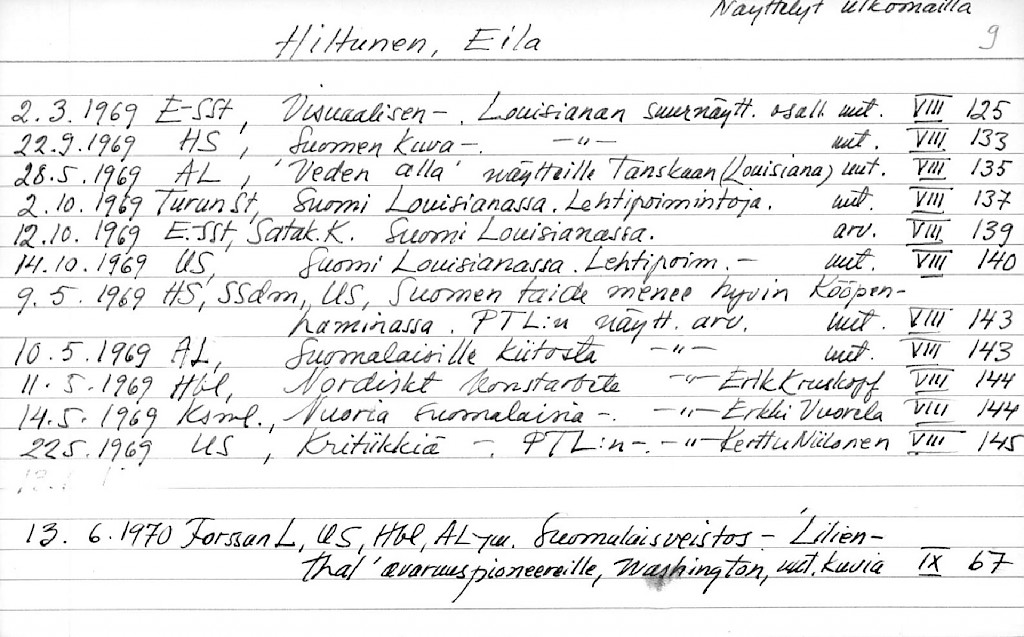 Näyttelyt ulkomailla
Hiltunen, Eila 9
2.3.1969 E-SSt, Visuaalisen-. Louisianan suurnäytt. osall. uut. VIII 125
22.9.1969 HS, Suomen kuva-. -"- uut. VIII 133
28.5.1969 AL, 'Veden alla' näytteille Tanskaan (Louisiana) uut. VIII 135
2.10.1969 TurunSt, Suomi Louisianassa. Lehtipoimintoja. uut. VIII 137
12.10.1969 E.SSt, Satak.K. Suomi Louisianassa. arv. VIII 139
14.10.1969 US, Suomi Louisianassa. Lehtipoim.- uut. VIII 140
9.5.1969 HS, SSdm, US, Suomen taide menee hyvin Kööpen-
haminassa. PTL:n näytt. arv. uut. VIII 143
10.5.1969 AL, Suomalaisille kiitosta -"- uut. VIII 143
11.5.1969 Hbl, Nordiskt konstarbete -"- Erik Kruskopf VIII 144
14.5.1969 Ksml., Nuoria suomalaisia-. -"- Erkki Vuorela VIII 144
22.5.1969 US, Kritiikkiä -. PTL:n-. -"- Kerttu Niilonen VIII 145
13.6.1970 Forssan L, US, Hbl, AL-ym. Suomalaisveistos - 'Lilien-
thal' avaruuspioneereille, Washington, uut. kuvia IX 67